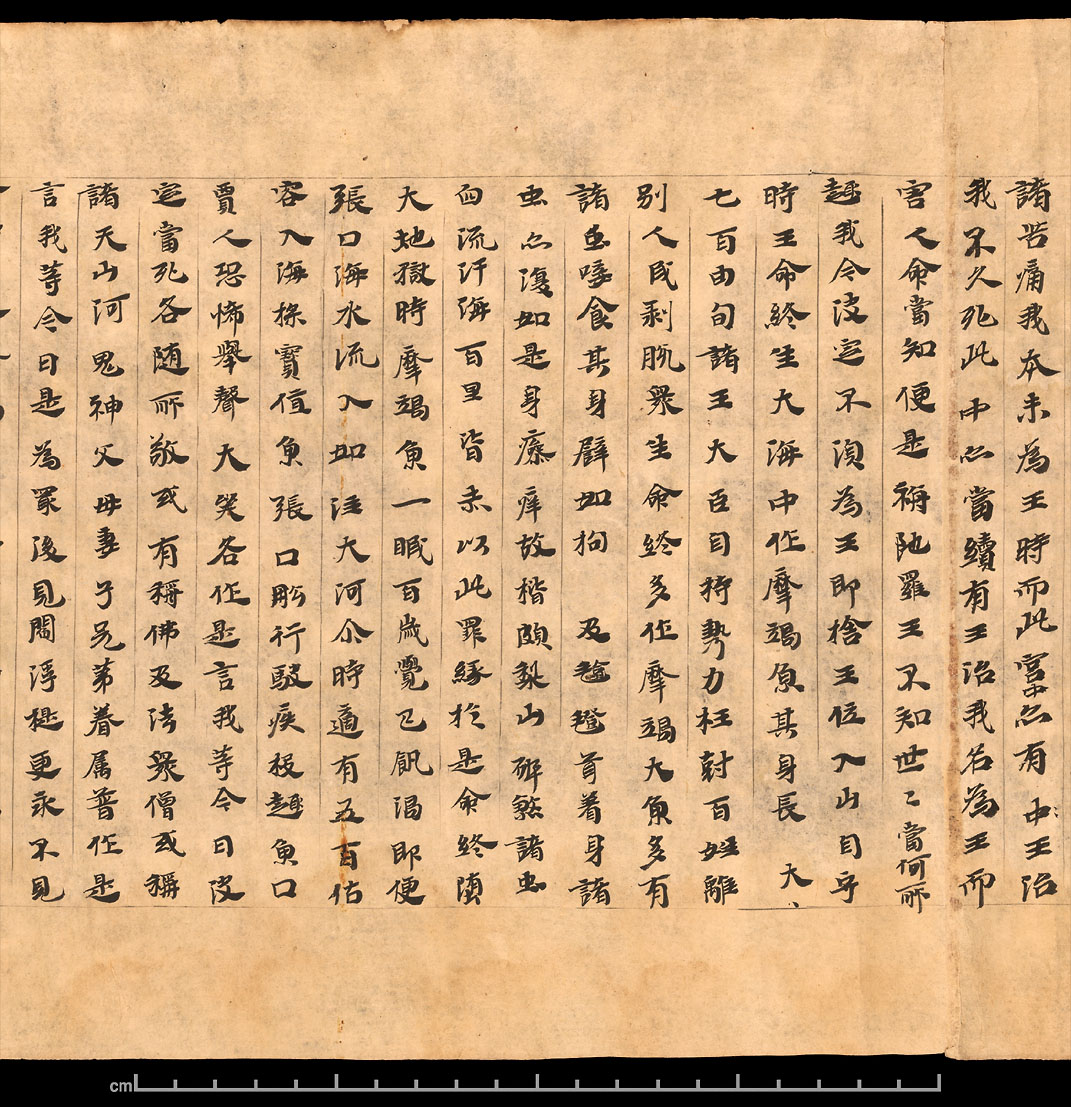 諸苦痛我本未為王時而此宮中亦有中王治
我不久死此中亦當續有王治我名為王而
害人命當知便是栴陁羅王不知世〻當何所
趣我今波定不湏為王即捨王位入山自守
時王命終生大海中作摩竭魚其身長大
七百由旬諸王大臣自恃勢力枉尅百姓離
别人民剥脫衆生命終多作摩竭大魚多有
諸虫唼食其身辟如拘 及 㲪著身諸
虫亦復如是身癢痒故楷頗梨山碎煞諸虫
血流汙海百里皆赤以此罪緣於是命終墮
大地獄時摩竭魚一眠百歲覺已飢渴即便
張口海水流入如注大河尒時適有五百估
客入海採寶值魚張口船行駛疾投趣魚口
賈人恐怖舉聲大哭各作是言我等今日波
定當死各随所敬或有稱佛及法衆僧或稱
諸天山河鬼神父母妻子兄弟眷属普作是
言我等今日是為冣後見閻浮提更永不見